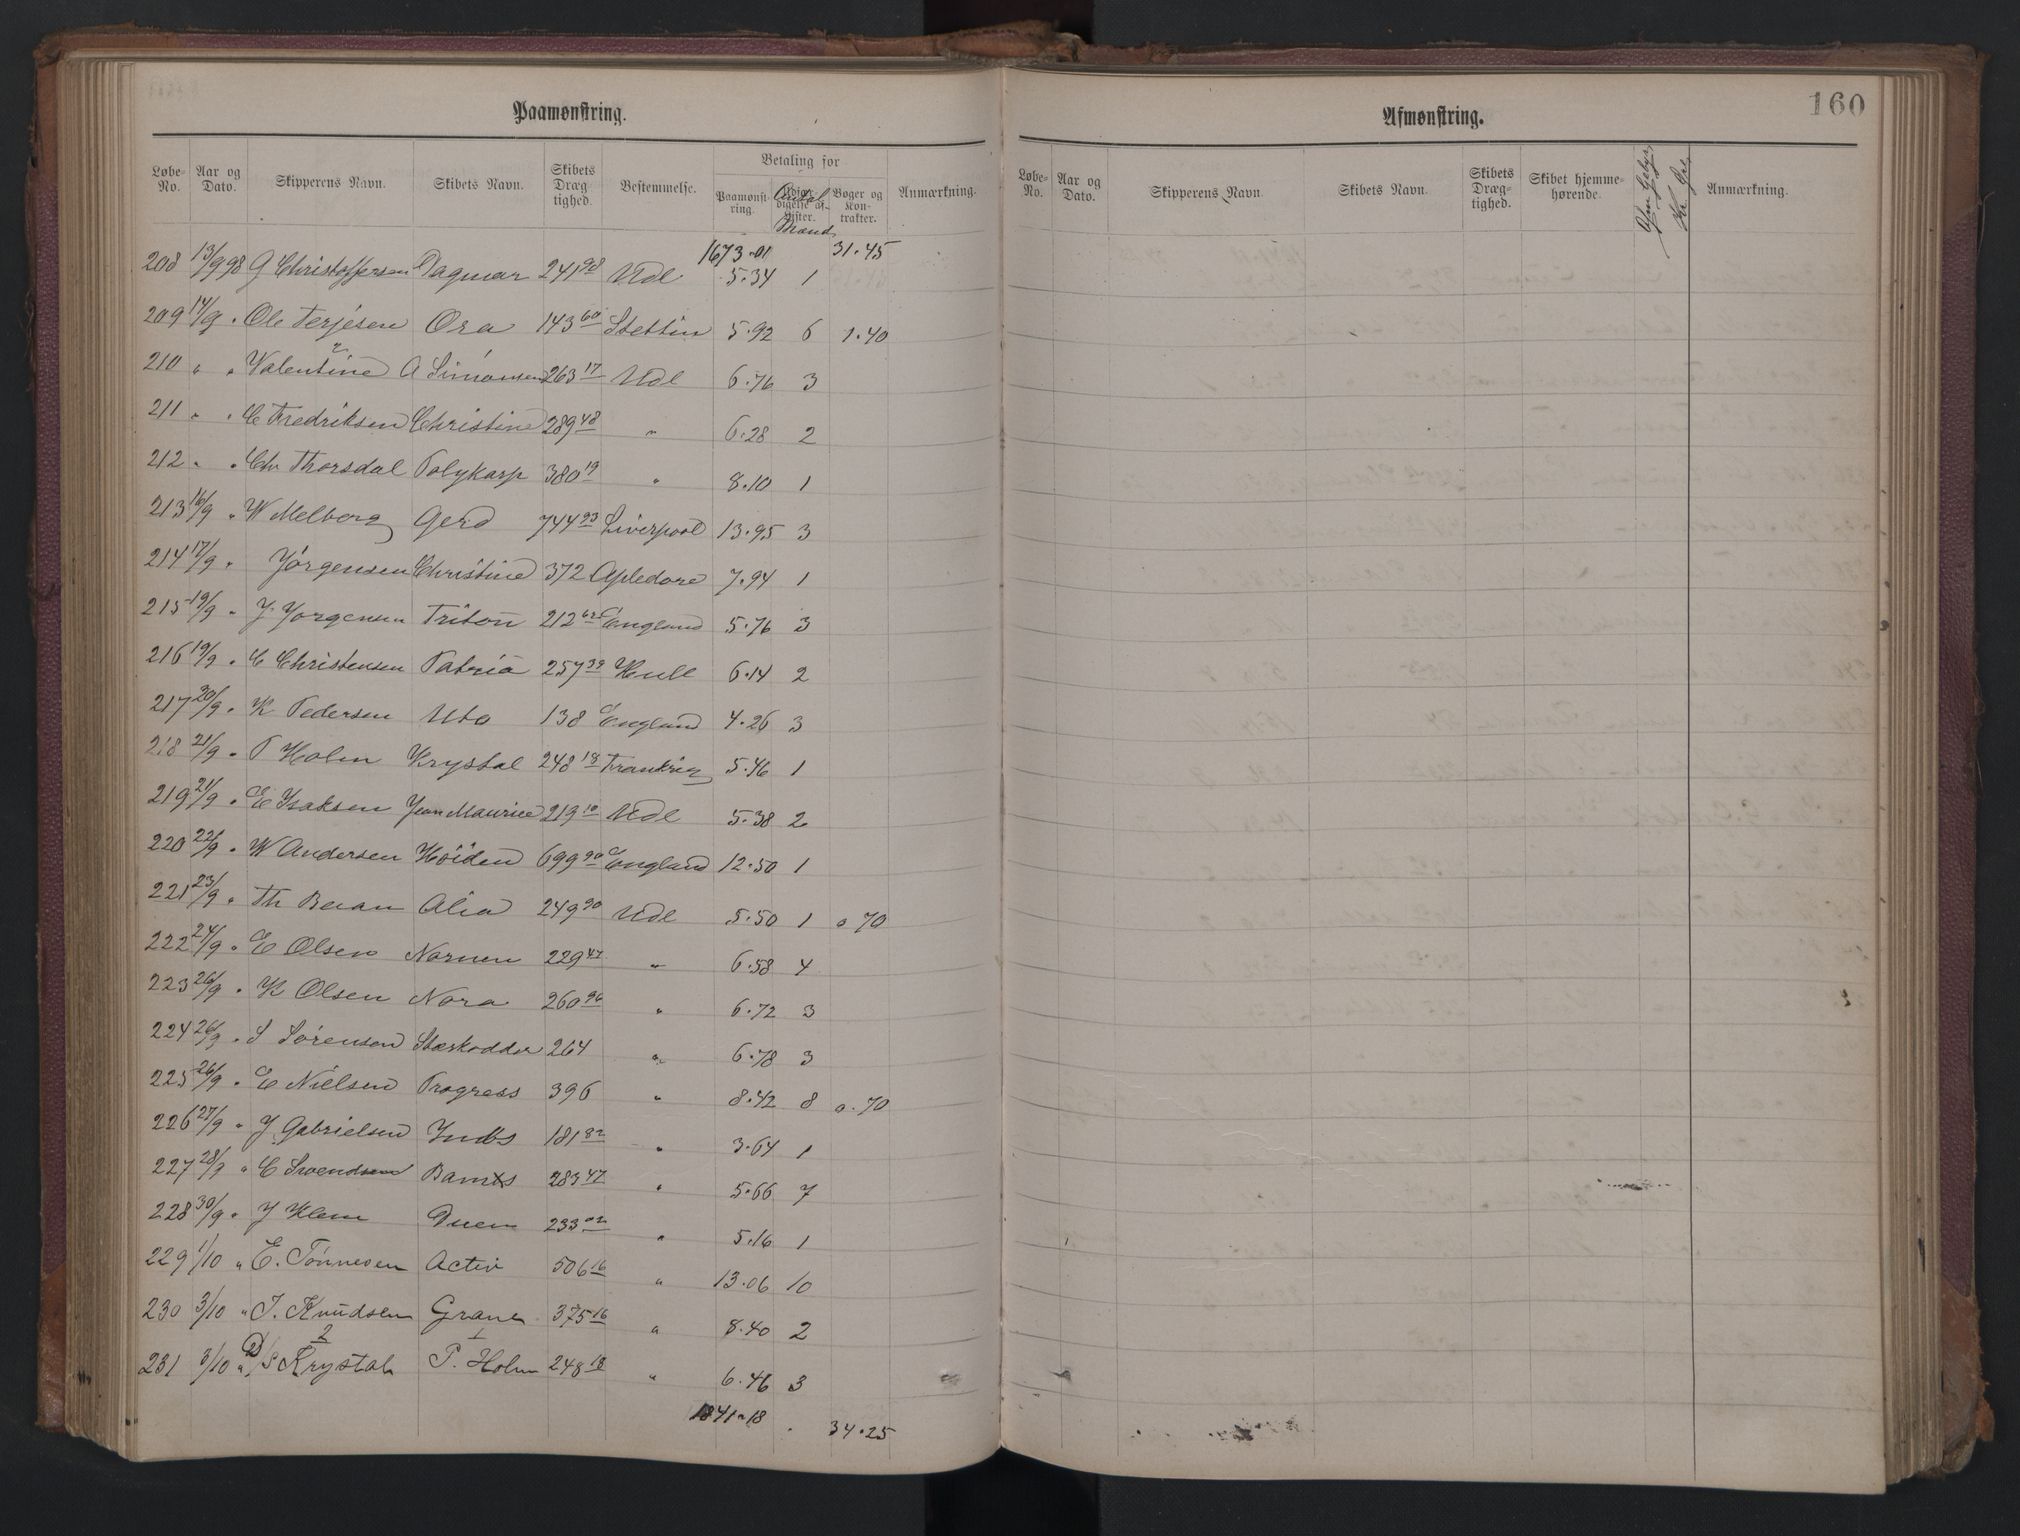 Paamønstring.
Løbe-No. Aar og Dato. Skipperens Navn. Skibets Navn. Skibets Dræg tighed. Bestemmelse. Betaling for Paamønst-ring. Antal Mand Bøger og Kon-trakter. Anmærkning.
1673.01 31.45
208 13/9 98 G Christoffersen Dagmar 241 98 Udl 5.34 1
209 14/9 " Ole Terjesen Ora 143 60 Stettin 5.92 6 1.40
210 " " Valentine 2 A Simonsen 263 17 Udl 6.76 3
211 " " C Fredriksen Christine 289 48 " 6.28 2
212 " " Chr Thorsdal Polykarp 380 19 " 8.10 1
213 16/9 " W Melberg Gerd 744 93 Liverpool 13.95 3
214 17/9 " Jørgensen Christine 372 Apledore 7.94 1
215 19/9 " J Jørgensen Triton 212 62 England 5.76 3
216 19/9 " C Christensen Patria 257 39 Hull 6.14 2
217 20/9 " K Pedersen Uto 138 England 4.26 3
218 21/9 " P Holm Krystal 248 18 Frankrig 5.46 1
219 21/9 " E Isaksen Jean Maurice 219 10 Udl 5.38 2
220 22/9 " W Andersen Høiden 699 90 England 12.50 1
221 23/9 " Th Beian Alia 249 90 Udl 5.50 1 0.70
222 24/9 " E Olsen Nornen 229 47 " 6.58 4
223 26/9 " K Olsen Nora 260 96 " 6.72 3
224 26/9 " S Sørensen Stærkodder 264 " 6.78 3
225 26/9 " E Nielsen Progress 396 " 8.42 8 0.70
226 27/9 " J Gabrielsen 181 82 " 3.64 1
227 28/9 " C Svendsen 283 47 " 5.66 7
228 30/9 " J Klem Duen 233 02 " 5.16 1
229 1/10 " E. Tønnesen Activ 506 16 " 13.06 10
230 3/10 " J. Knudsen Grane 375 16 " 8.40 2
231 3/10 " D/S Krystal 2 P. Holm 1 248 18 " 6.46 3
1841.18 34.25
Afmønstring.
160
Løbe-No. Aar og Dato. Skipperens Navn. Skibets Navn. Skibets Dræg-tighed. Skibet hjemme-hørende. Kr Øre Anmærkning.